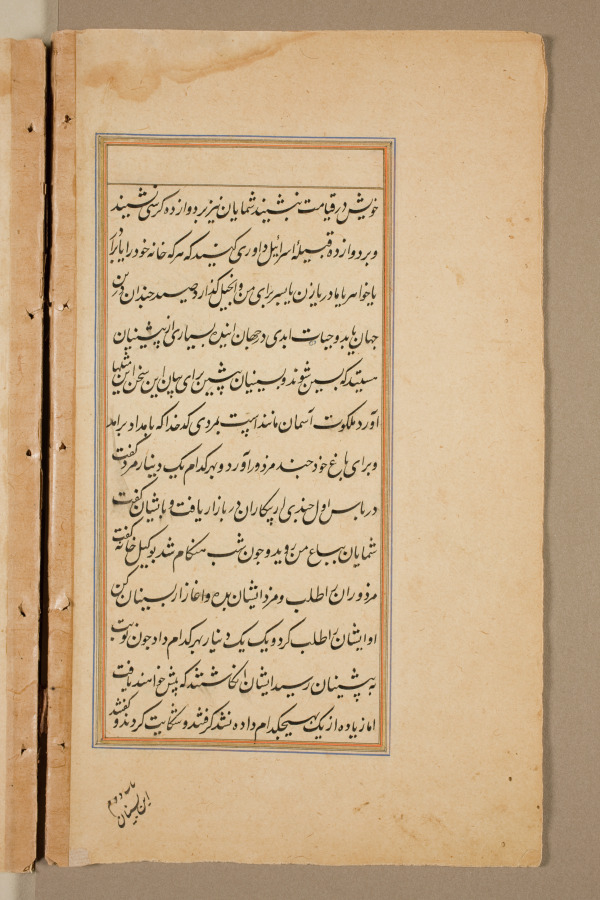 خویش در قیامت بنشیند شمایان نیز بر دوازده کرسی نشیند
و بر دوازده قبیلهٔ اسرائیل داوری کنید که هر که خانه خود را یا برادر
یا خواهر یا مادر یا زن یا پسر برای من و انجیل گذارد صد چندان درین
جهان یابد و حیات ابدی در جهان بسیاری از پیشینیان
هستند که پسین شوند و پسینیان پیشین برای بیان این سخن این
آورد ملکوت آسمان مانند است بمردی کدخدا که بامداد برامد
و برای باغ خود چند مزدور آورد و بهر کدام یک دینار مزد گفت
در پاس اول چندی از بیکاران در بازار یافت و باشان گفت
شمایان بباغ من روید و چون شب هنگام شد بوکیل خانه گفت
مزدوران را طلب و مزد ایشان بده و اغاز از پسینان کن
او ایشان را طلب کرد و یک یک دینار بهر کدام داد چون نوبت
به پیشینان رسید ایشان انکاشتند که بیش خواهند یافت
اما زیاده از یک بهیچکدام داده نشد گرفتند و شکایت کردند و گفتند
این پسینان